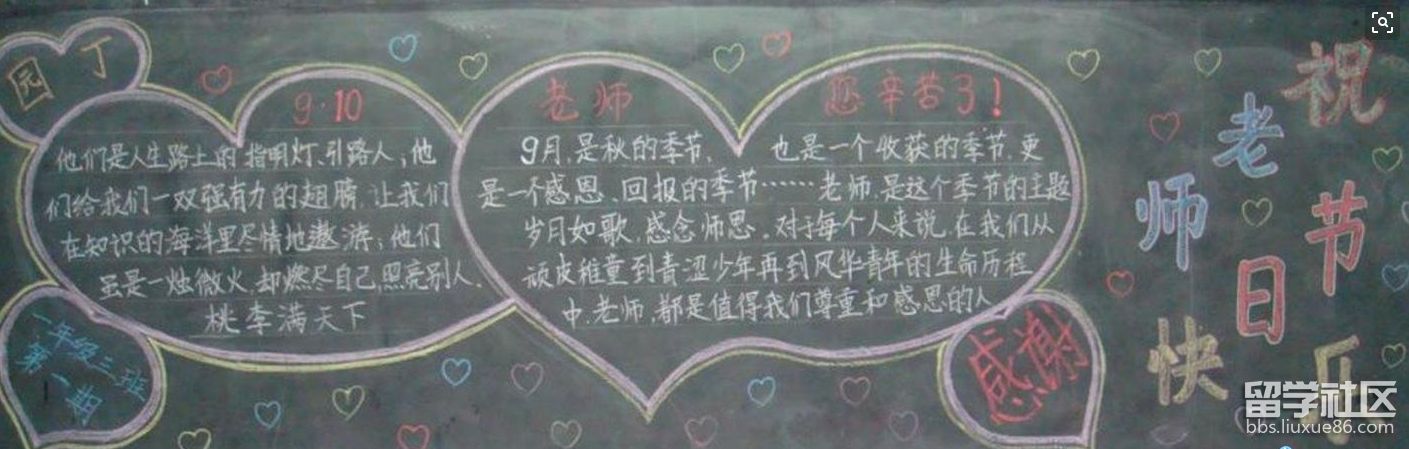 园丁
9·10
他们是人生路上的指明灯、引路人；他
们给我们一双强有力的翅膀,让我们
在知识的海洋里尽情地遨游；他们
虽是一烛微火,却燃尽自己,照亮别人.
桃李满天下
一年级三班
第一期
老师 您辛苦了！
9月,是秋的季节, 也是一个收获的季节,更
是一个感恩、回报的季节……老师,是这个季节的主题
岁月如歌,感念师恩。对于每个人来说,在我们从
顽皮稚童到青涩少年再到风华青年的生命历程
中,老师,都是值得我们尊重和感恩的人
感谢
祝
老师
节日
快乐
留学社区
bbs.liuxue86.com